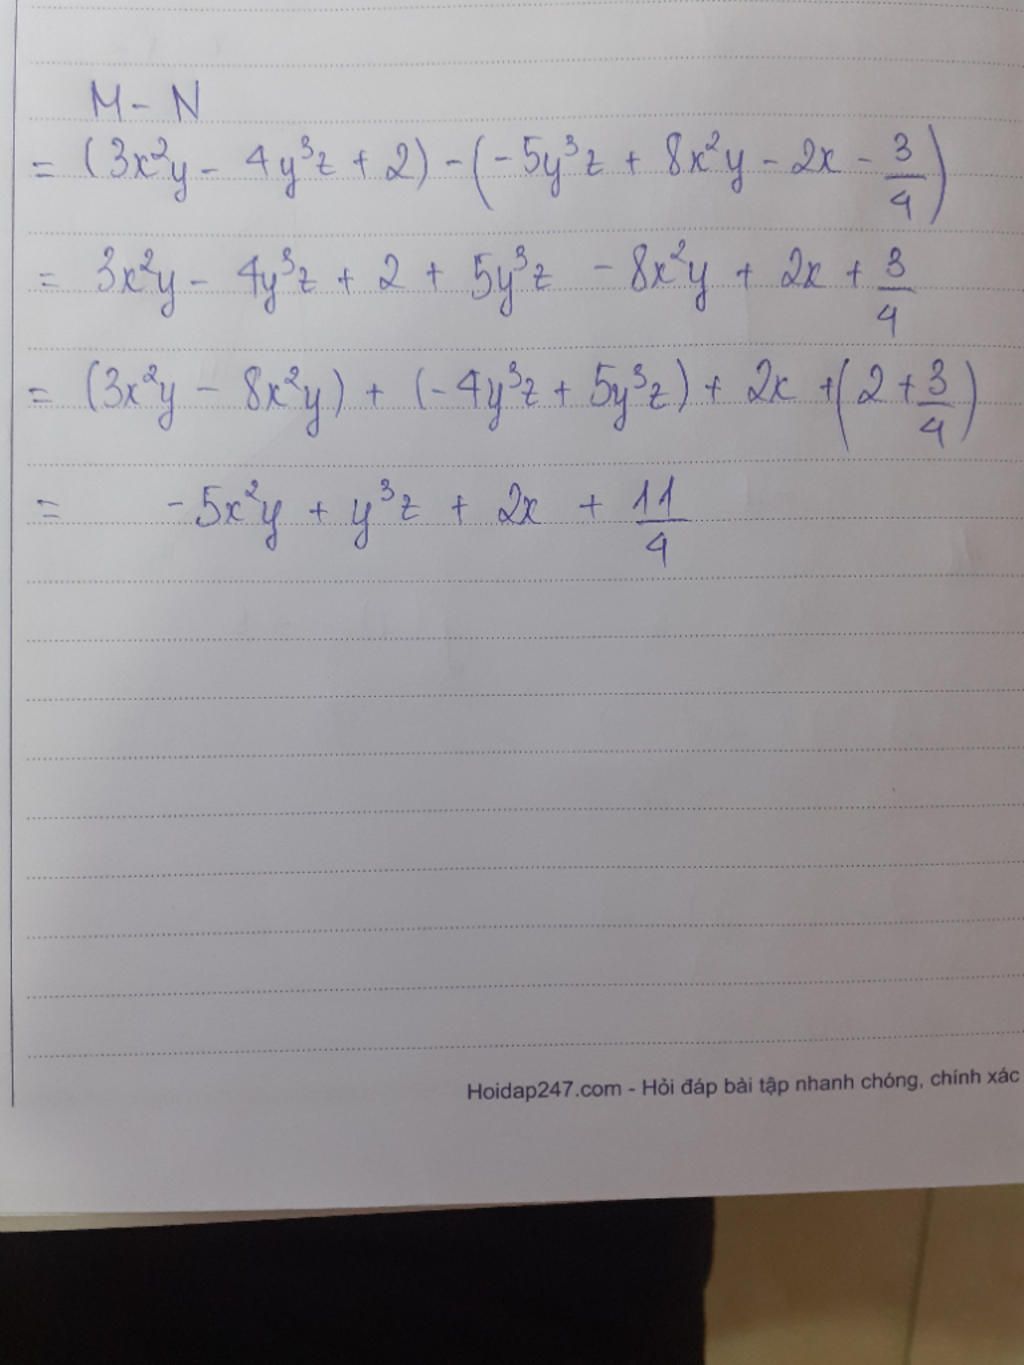 M - N
= (3x²y - 4y³z + 2) - (-5y³z + 8x²y - 2x - 3/4)
= 3x²y - 4y³z + 2 + 5y³z - 8x²y + 2x + 3/4
= (3x²y - 8x²y) + (-4y³z + 5y³z) + 2x + (2 + 3/4)
= -5x²y + y³z + 2x + 11/4
Hoidap247.com - Hỏi đáp bài tập nhanh chóng, chính xác